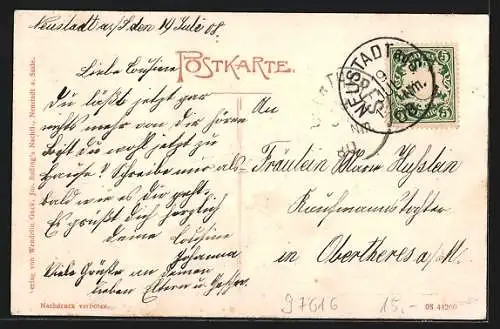 Neustadt a/S. den 19 Juli 08.
POSTKARTE.
Liebe Cousine
Du läßt jetzt gar
nichts mehr von dir hören
Bist du wohl jetzt zu
Hause? Schreibe mir als-
bald wie es dir geht.
Es grüßt dich herzlich
deine Cousine
Johanna
Viele Grüße an deinen
lieben Eltern u.
An
Fräulein Marie Hußlein
Kaufmannstochter
in Obertheres a/M.
NEUSTADT
5
5
Verlag von Wendolin Gack, Jos. Nachf., Neustadt a. Saale.
Nachdruck verboten.
08 44200
97616
15,-